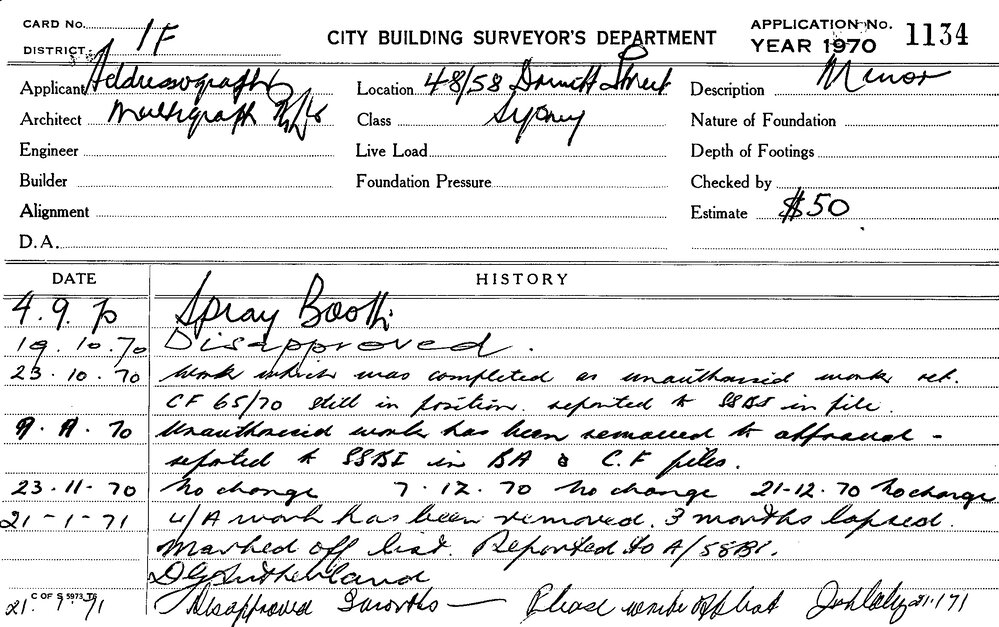 CARD NO. 1F
DISTRICT
CITY BUILDING SURVEYOR'S DEPARTMENT
APPLICATION NO. 1134
YEAR 1970
Applicant Addressograph Location 48/58 Druitt Street Description Minor
Architect Multigraph P/L Class Sydney Nature of Foundation
Engineer Live Load Depth of Footings
Builder Foundation Pressure Checked by
Alignment Estimate $50
D.A.
DATE HISTORY
4.9.70 Spray Booth.
19.10.70 Disapproved.
23.10.70 Work which was completed as unauthorised work ref.
CF 65/70 still in position. reported to SSBI in file.
9.11.70 Unauthorised work has been removed to approval -
reported to SSBI in BA & C.F files.
23.11.70 No change 7.12.70 No change 21-12.70 No change
21-1-71 U/A work has been removed. 3 months lapsed.
Marked off list. Reported to A/SSBI.
D G Sutherland
C OF S 5973 T6
21.1.71 Disapproved 3 months — Please write applicant 21.1.71